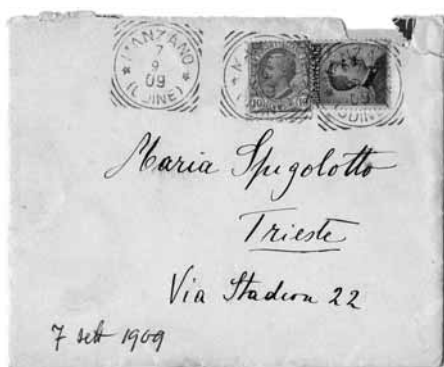 MANZANO
7
9
09
(UDINE)
(UDINE)
Maria Spigolotto
Trieste
Via Stadion 22
7 sett 1909